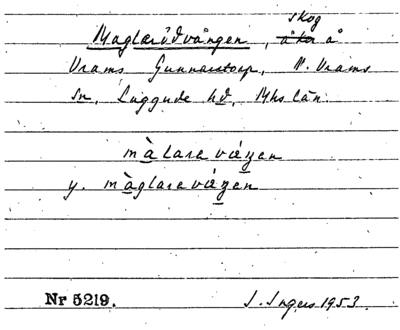 skog
Maglarödvången, åker å
Vrams Gunnarstorp, N. Vrams
sn, Luggude hd, Mhs län.
màlareváŋen
y. màglareváŋen
Nr 5219.
I. Ingers 1953.